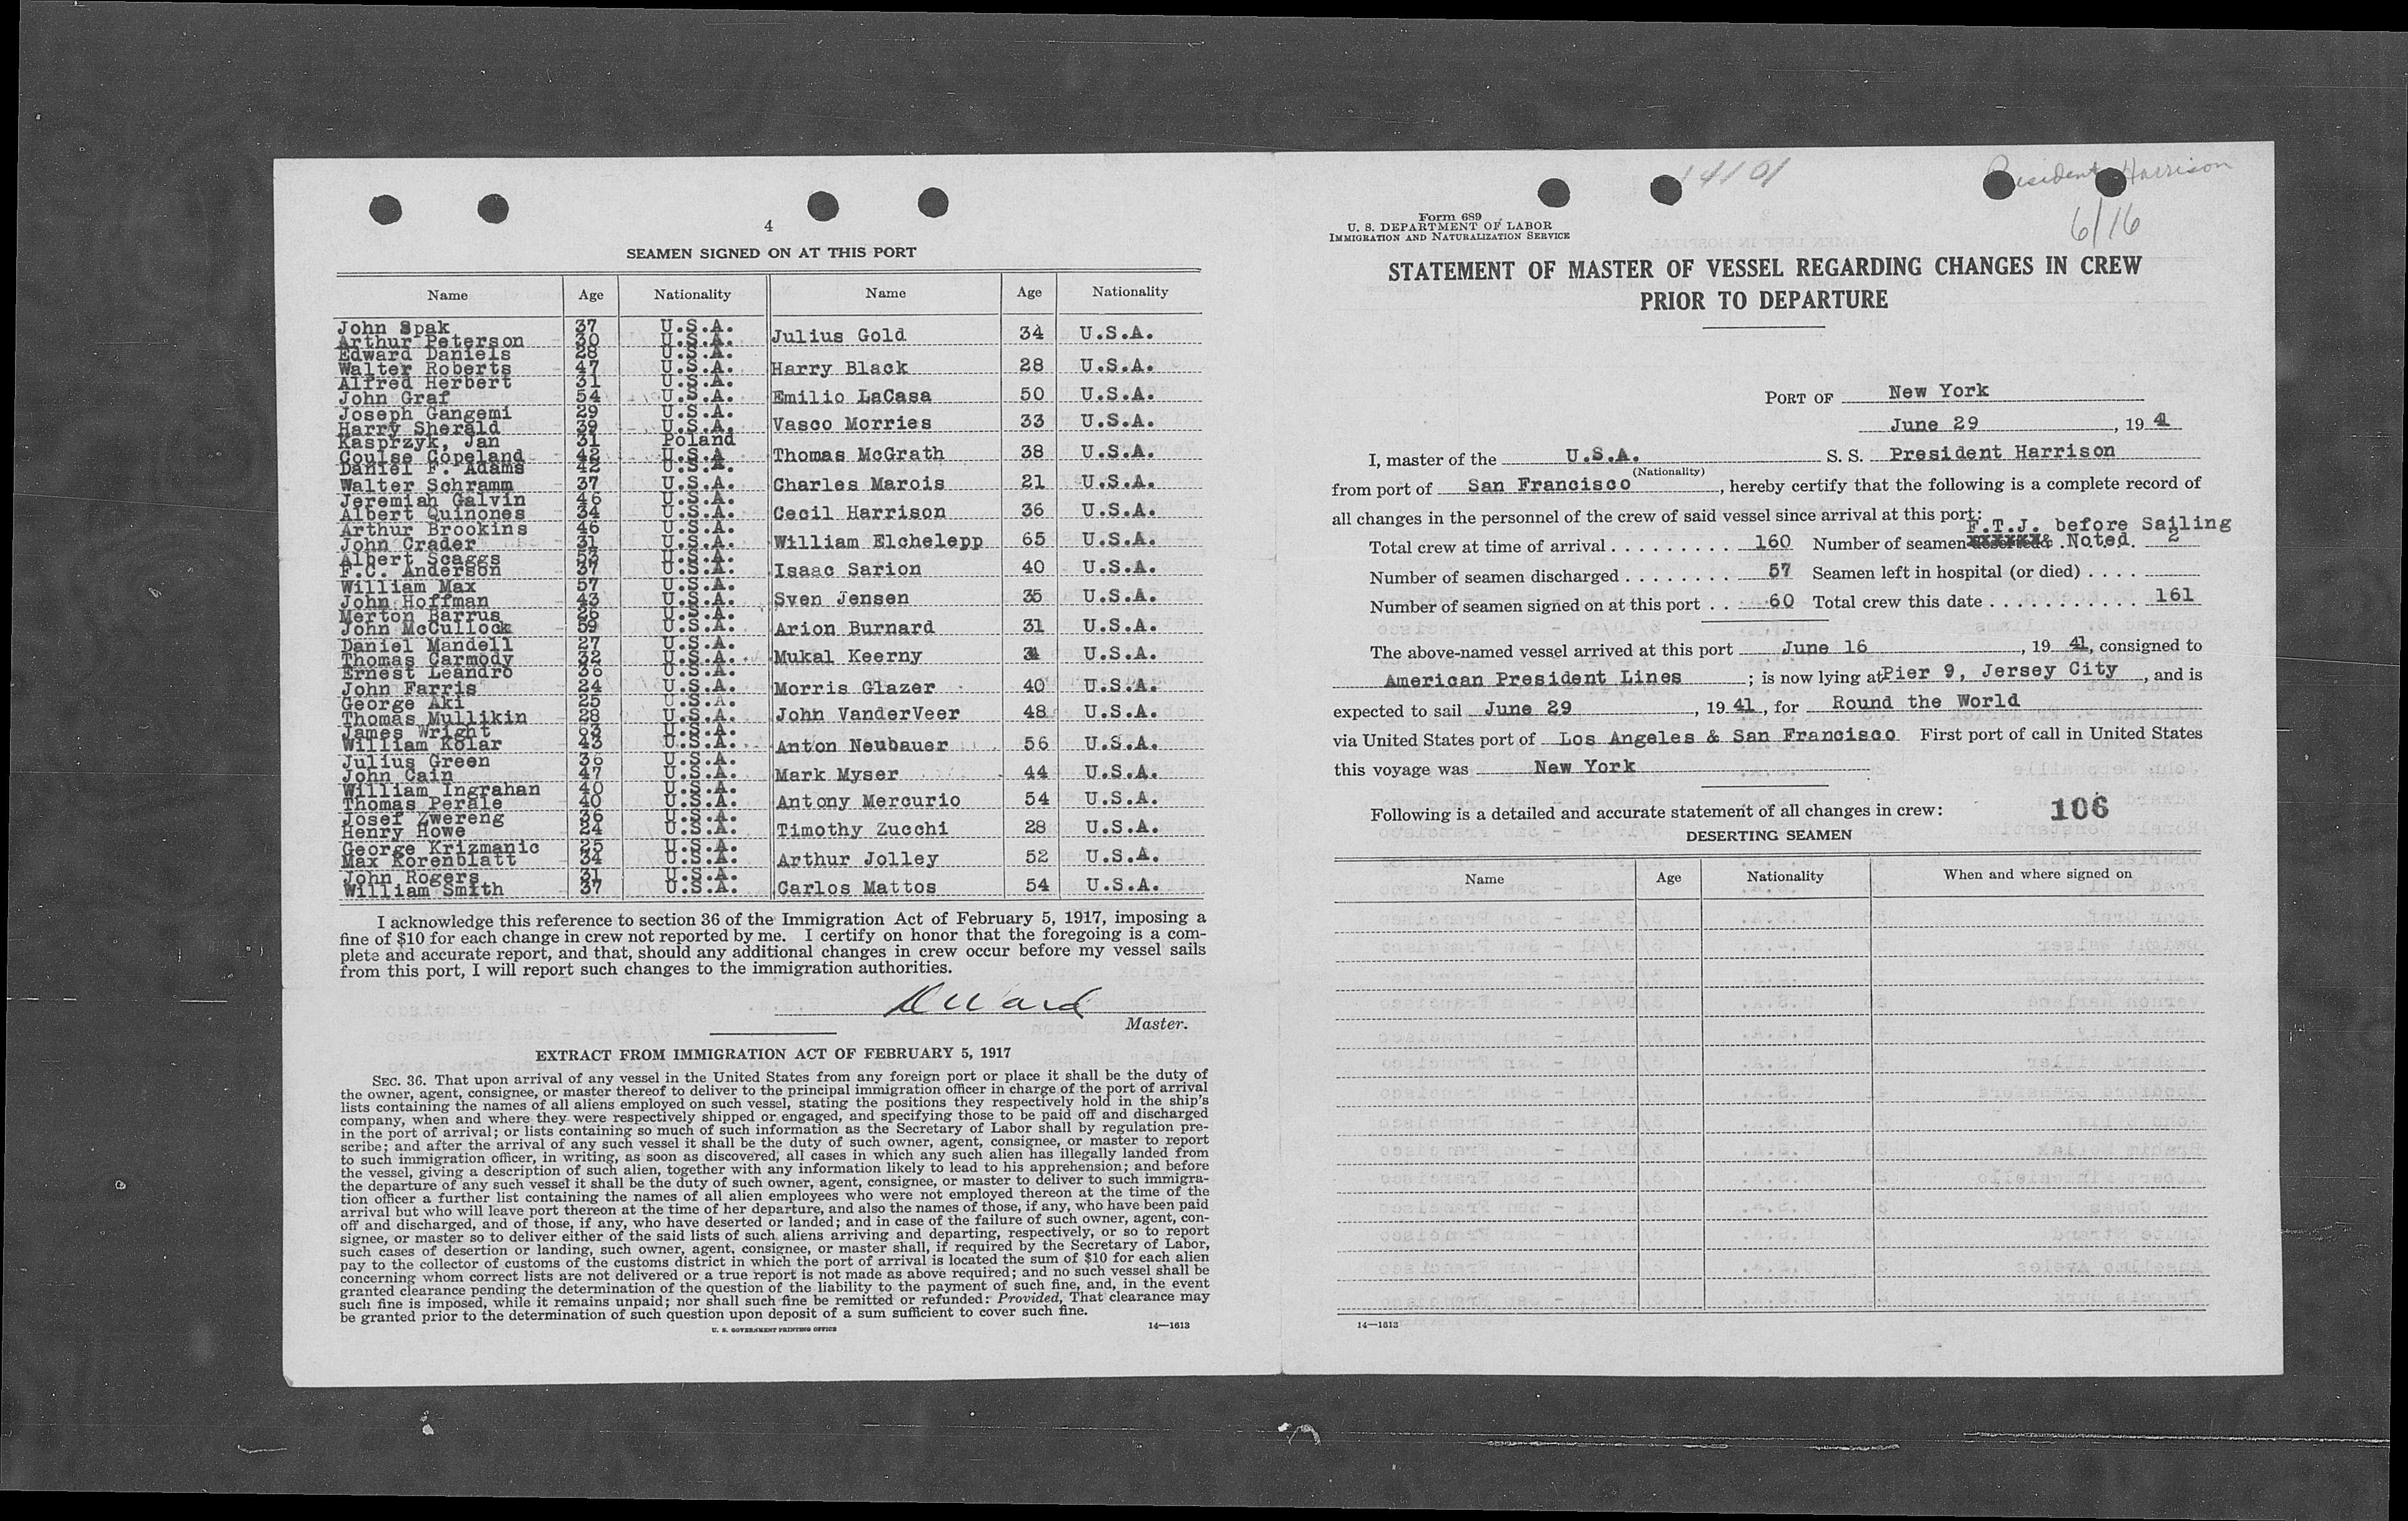 4
SEAMEN SIGNED ON AT THIS PORT
Name Age Nationality Name Age Nationality
John Spak 37 U.S.A.
Arthur Peterson 30 U.S.A.
Edward Daniels 28 U.S.A.
Walter Roberts 47 U.S.A.
Alfred Herbert 31 U.S.A.
John Graf 54 U.S.A.
Joseph Gangemi 29 U.S.A.
Harry Sherald 39 U.S.A.
Kasprzyk, Jan 31 Poland
Coulse Copeland 42 U.S.A
Daniel F. Adams 42 U.S.A.
Walter Schramm 37 U.S.A.
Jeremiah Galvin 46 U.S.A.
Albert Quinones 34 U.S.A.
Arthur Brookins 46 U.S.A.
John Crader 31 U.S.A.
Albert Scaggs 53 U.S.A.
F.C. Anderson 37 U.S.A.
William Max 57 U.S.A.
John Hoffman 43 U.S.A.
Merton Barrus 26 U.S.A.
John McCullock 59 U.S.A.
Daniel Mandell 27 U.S.A.
Thomas Carmody 32 U.S.A.
Ernest Leandro 36 U.S.A.
John Farris 24 U.S.A.
George Aki 25 U.S.A.
Thomas Mullikin 28 U.S.A.
James Wright 63 U.S.A.
William Kolar 43 U.S.A.
Julius Green 36 U.S.A.
John Cain 47 U.S.A.
William Ingrahan 40 U.S.A.
Thomas Perale 40 U.S.A.
Josef Zwereng 36 U.S.A.
Henry Howe 24 U.S.A.
George Krizmanic 25 U.S.A.
Max Korenblatt 34 U.S.A.
John Rogers 31 U.S.A.
William Smith 37 U.S.A.
Julius Gold 34 U.S.A.
Harry Black 28 U.S.A.
Emilio LaCasa 50 U.S.A.
Vasco Morries 33 U.S.A.
Thomas McGrath 38 U.S.A.
Charles Marois 21 U.S.A.
Cecil Harrison 36 U.S.A.
William Elchelepp 65 U.S.A.
Isaac Sarion 40 U.S.A.
Sven Jensen 35 U.S.A.
Arion Burnard 31 U.S.A.
Mukal Keerny U.S.A.
Morris Glazer 40 U.S.A.
John VanderVeer 48 U.S.A.
Anton Neubauer 56 U.S.A.
Mark Myser 44 U.S.A.
Antony Mercurio 54 U.S.A.
Timothy Zucchi 28 U.S.A.
Arthur Jolley 52 U.S.A.
Carlos Mattos 54 U.S.A.
I acknowledge this reference to section 36 of the Immigration Act of February 5, 1917, imposing a
fine of $10 for each change in crew not reported by me. I certify on honor that the foregoing is a com-
plete and accurate report, and that, should any additional changes in crew occur before my vessel sails
from this port, I will report such changes to the immigration authorities.
Master.
EXTRACT FROM IMMIGRATION ACT OF FEBRUARY 5, 1917
SEC. 36. That upon arrival of any vessel in the United States from any foreign port or place it shall be the duty of
the owner, agent, consignee, or master thereof to deliver to the principal immigration officer in charge of the port of arrival
lists containing the names of all aliens employed on such vessel, stating the positions they respectively hold in the ship's
company, when and where they were respectively shipped or engaged, and specifying those to be paid off and discharged
in the port of arrival; or lists containing so much of such information as the Secretary of Labor shall by regulation pre-
scribe; and after the arrival of any such vessel it shall be the duty of such owner, agent, consignee, or master to report
to such immigration officer, in writing, as soon as discovered, all cases in which any such alien has illegally landed from
the vessel, giving a description of such alien, together with any information likely to lead to his apprehension; and before
the departure of any such vessel it shall be the duty of such owner, agent, consignee, or master to deliver to such immigra-
tion officer a further list containing the names of all alien employees who were not employed thereon at the time of the
arrival but who will leave port thereon at the time of her departure, and also the names of those, if any, who have been paid
off and discharged, and of those, if any, who have deserted or landed; and in case of the failure of such owner, agent, con-
signee, or master so to deliver either of the said lists of such aliens arriving and departing, respectively, or so to report
such cases of desertion or landing, such owner, agent, consignee, or master shall, if required by the Secretary of Labor,
pay to the collector of customs of the customs district in which the port of arrival is located the sum of $10 for each alien
concerning whom correct lists are not delivered or a true report is not made as above required; and no such vessel shall be
granted clearance pending the determination of the question of the liability to the payment of such fine, and, in the event
such fine is imposed, while it remains unpaid; nor shall such fine be remitted or refunded: Provided, That clearance may
be granted prior to the determination of such question upon deposit of a sum sufficient to cover such fine.
U. S. GOVERNMENT PRINTING OFFICE 14—1613
14101
President Harrison
6/16
Form 689
U. S. DEPARTMENT OF LABOR
IMMIGRATION AND NATURALIZATION SERVICE
STATEMENT OF MASTER OF VESSEL REGARDING CHANGES IN CREW
PRIOR TO DEPARTURE
PORT OF New York
June 29, 19 41
I, master of the U.S.A. S. S. President Harrison
(Nationality)
from port of San Francisco, hereby certify that the following is a complete record of
all changes in the personnel of the crew of said vessel since arrival at this port:
F.T.J. before Sailing
Total crew at time of arrival 160 Number of seamen & Noted. 2
Number of seamen discharged 57 Seamen left in hospital (or died)
Number of seamen signed on at this port 60 Total crew this date 161
The above-named vessel arrived at this port June 16, 19 41, consigned to
American President Lines; is now lying at Pier 9, Jersey City, and is
expected to sail June 29, 19 41, for Round the World
via United States port of Los Angeles & San Francisco First port of call in United States
this voyage was New York
Following is a detailed and accurate statement of all changes in crew: 106
DESERTING SEAMEN
Name Age Nationality When and where signed on
14—1613